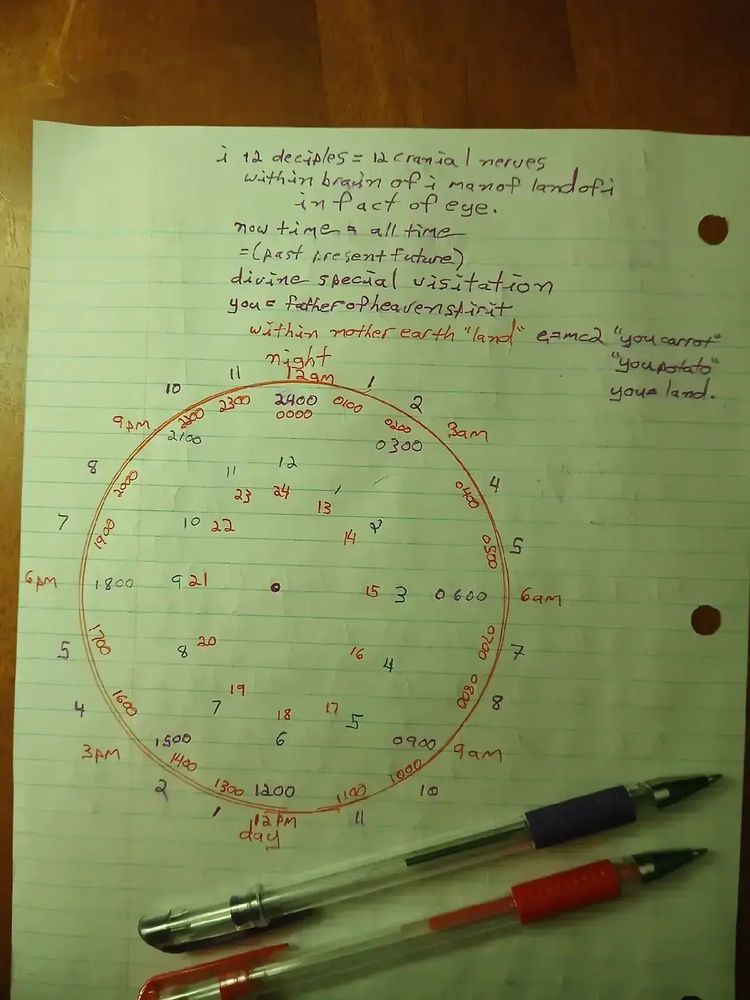 i 12 deciples = 12 cranial nerves
within brain of i man of land of i
in fact of eye.
now time = all time
=(past present future)
divine special visitation
you = father of heaven spirit
within mother earth "land" e=mc2 "you carrot"
"you potato"
you = land.
night
10 11 12am 1 2
9pm 2200 2300 2400 0100 0200 3am
2100 0000 0300
8 2000 11 12 1 0400 4
23 24 13
7 1900 10 22 14 2 0500 5
6pm 1800 9 21 15 3 0600 6am
5 1700 8 20 16 4 0700 7
4 1600 7 19 18 17 5 0800 8
6
3pm 1500 0900 9am
1400 1000
2 1300 1200 1100 10
1 12pm 11
day